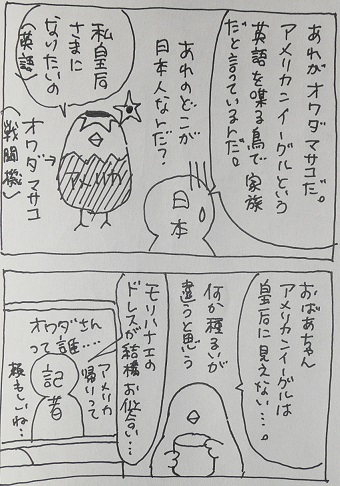 あれがオワダマサコだ。
アメリカンイーグルという
英語を喋る鳥で家族
だと言っているんだ。
あれのどこが
日本人なんだ?
日本
私皇后
さまに
なりたいの
(英語)
オワダマサコ
(戦闘機)
アメリカ
おばあちゃん
アメリカンイーグルは
皇后に見えない…。
何か種るいが
違うと思う
モリハナエの
ドレスが結構お似合い…
オワダさん
って誰……
記者
アメリカ
帰りって
頼もしいね…